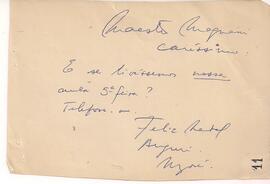 Maestro Mignoni
caríssimo.
E se tivéssemos nossa
aula 5ª feira?
Telefone-me.
Feliz Natal
Auguri.
11